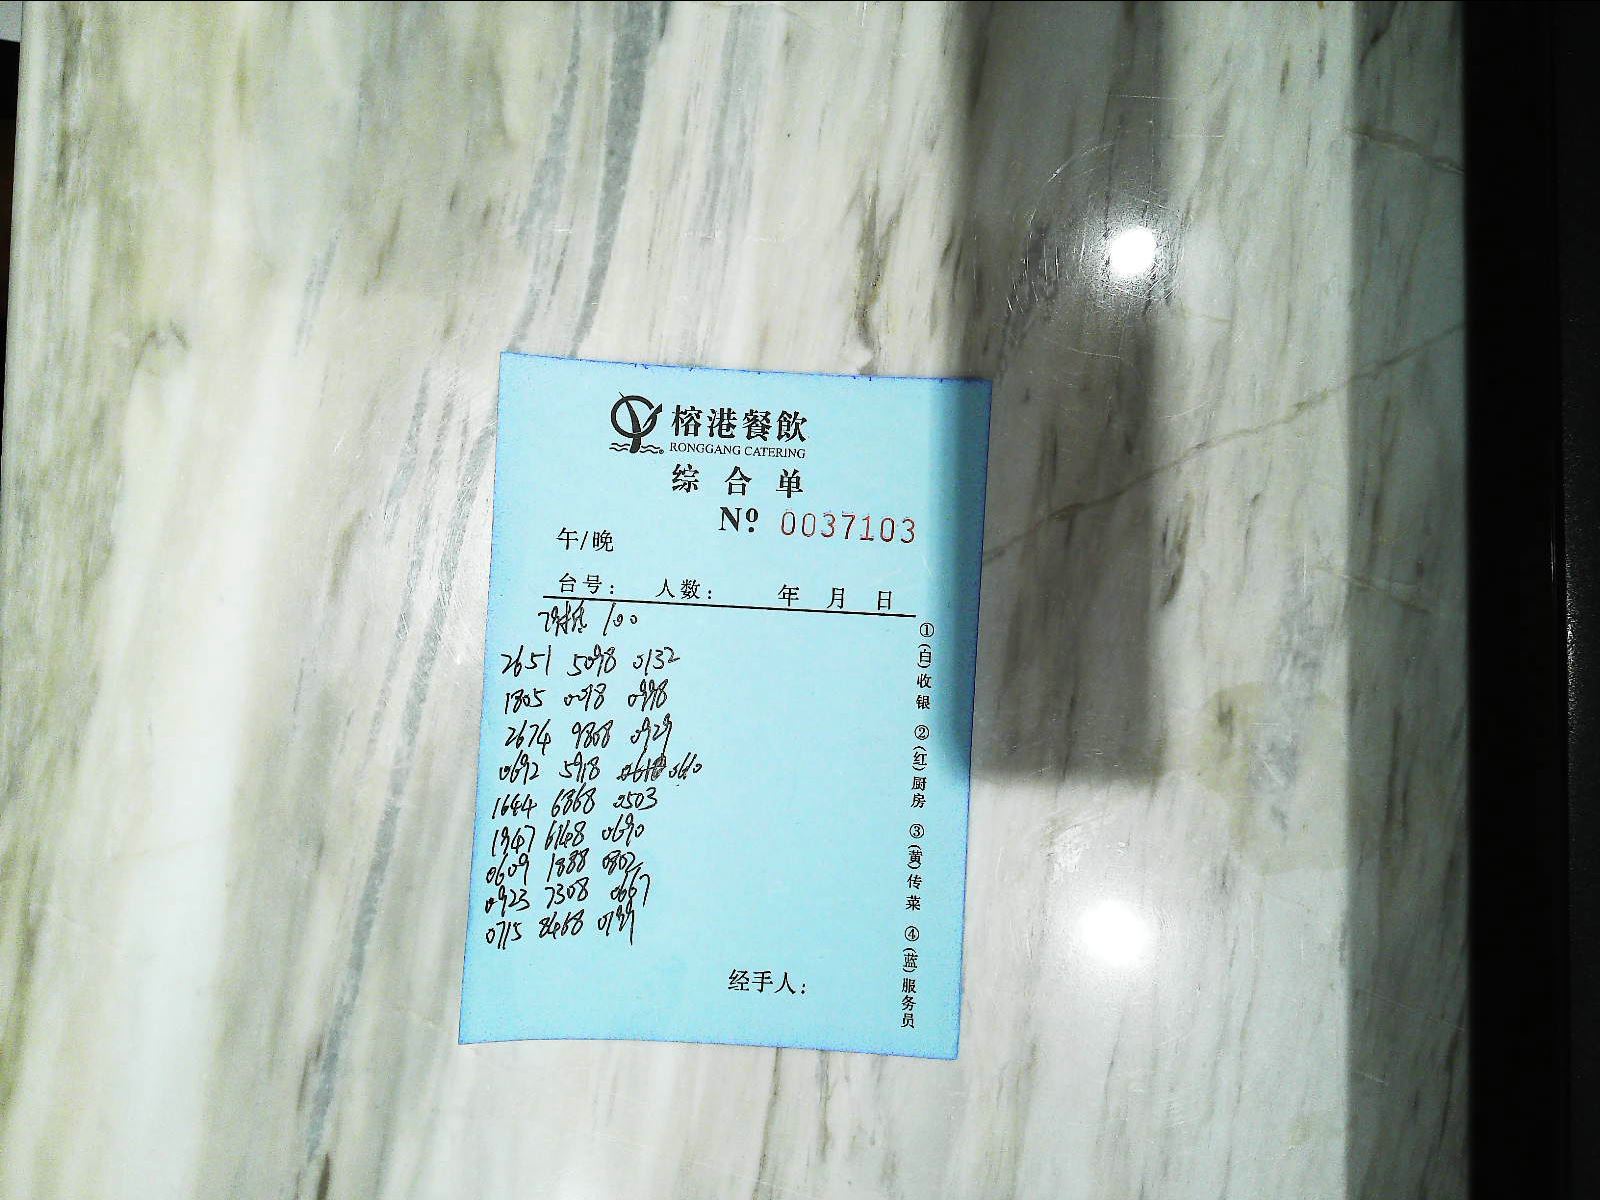 榕港餐飲
RONGGANG CATERING
综合单
Nº 0037103
午/晚
台号: 人数: 年 月 日
100
2651 5098 0132
1805 0098 0998
2674 9868 0929
0692 5918 0660
1644 6868 0503
1947 6148 0690
0609 1888 0802
0923 7308 0667
0715 8468 0199
经手人:
①(白)收银 ②(红)厨房 ③(黄)传菜 ④(蓝)服务员